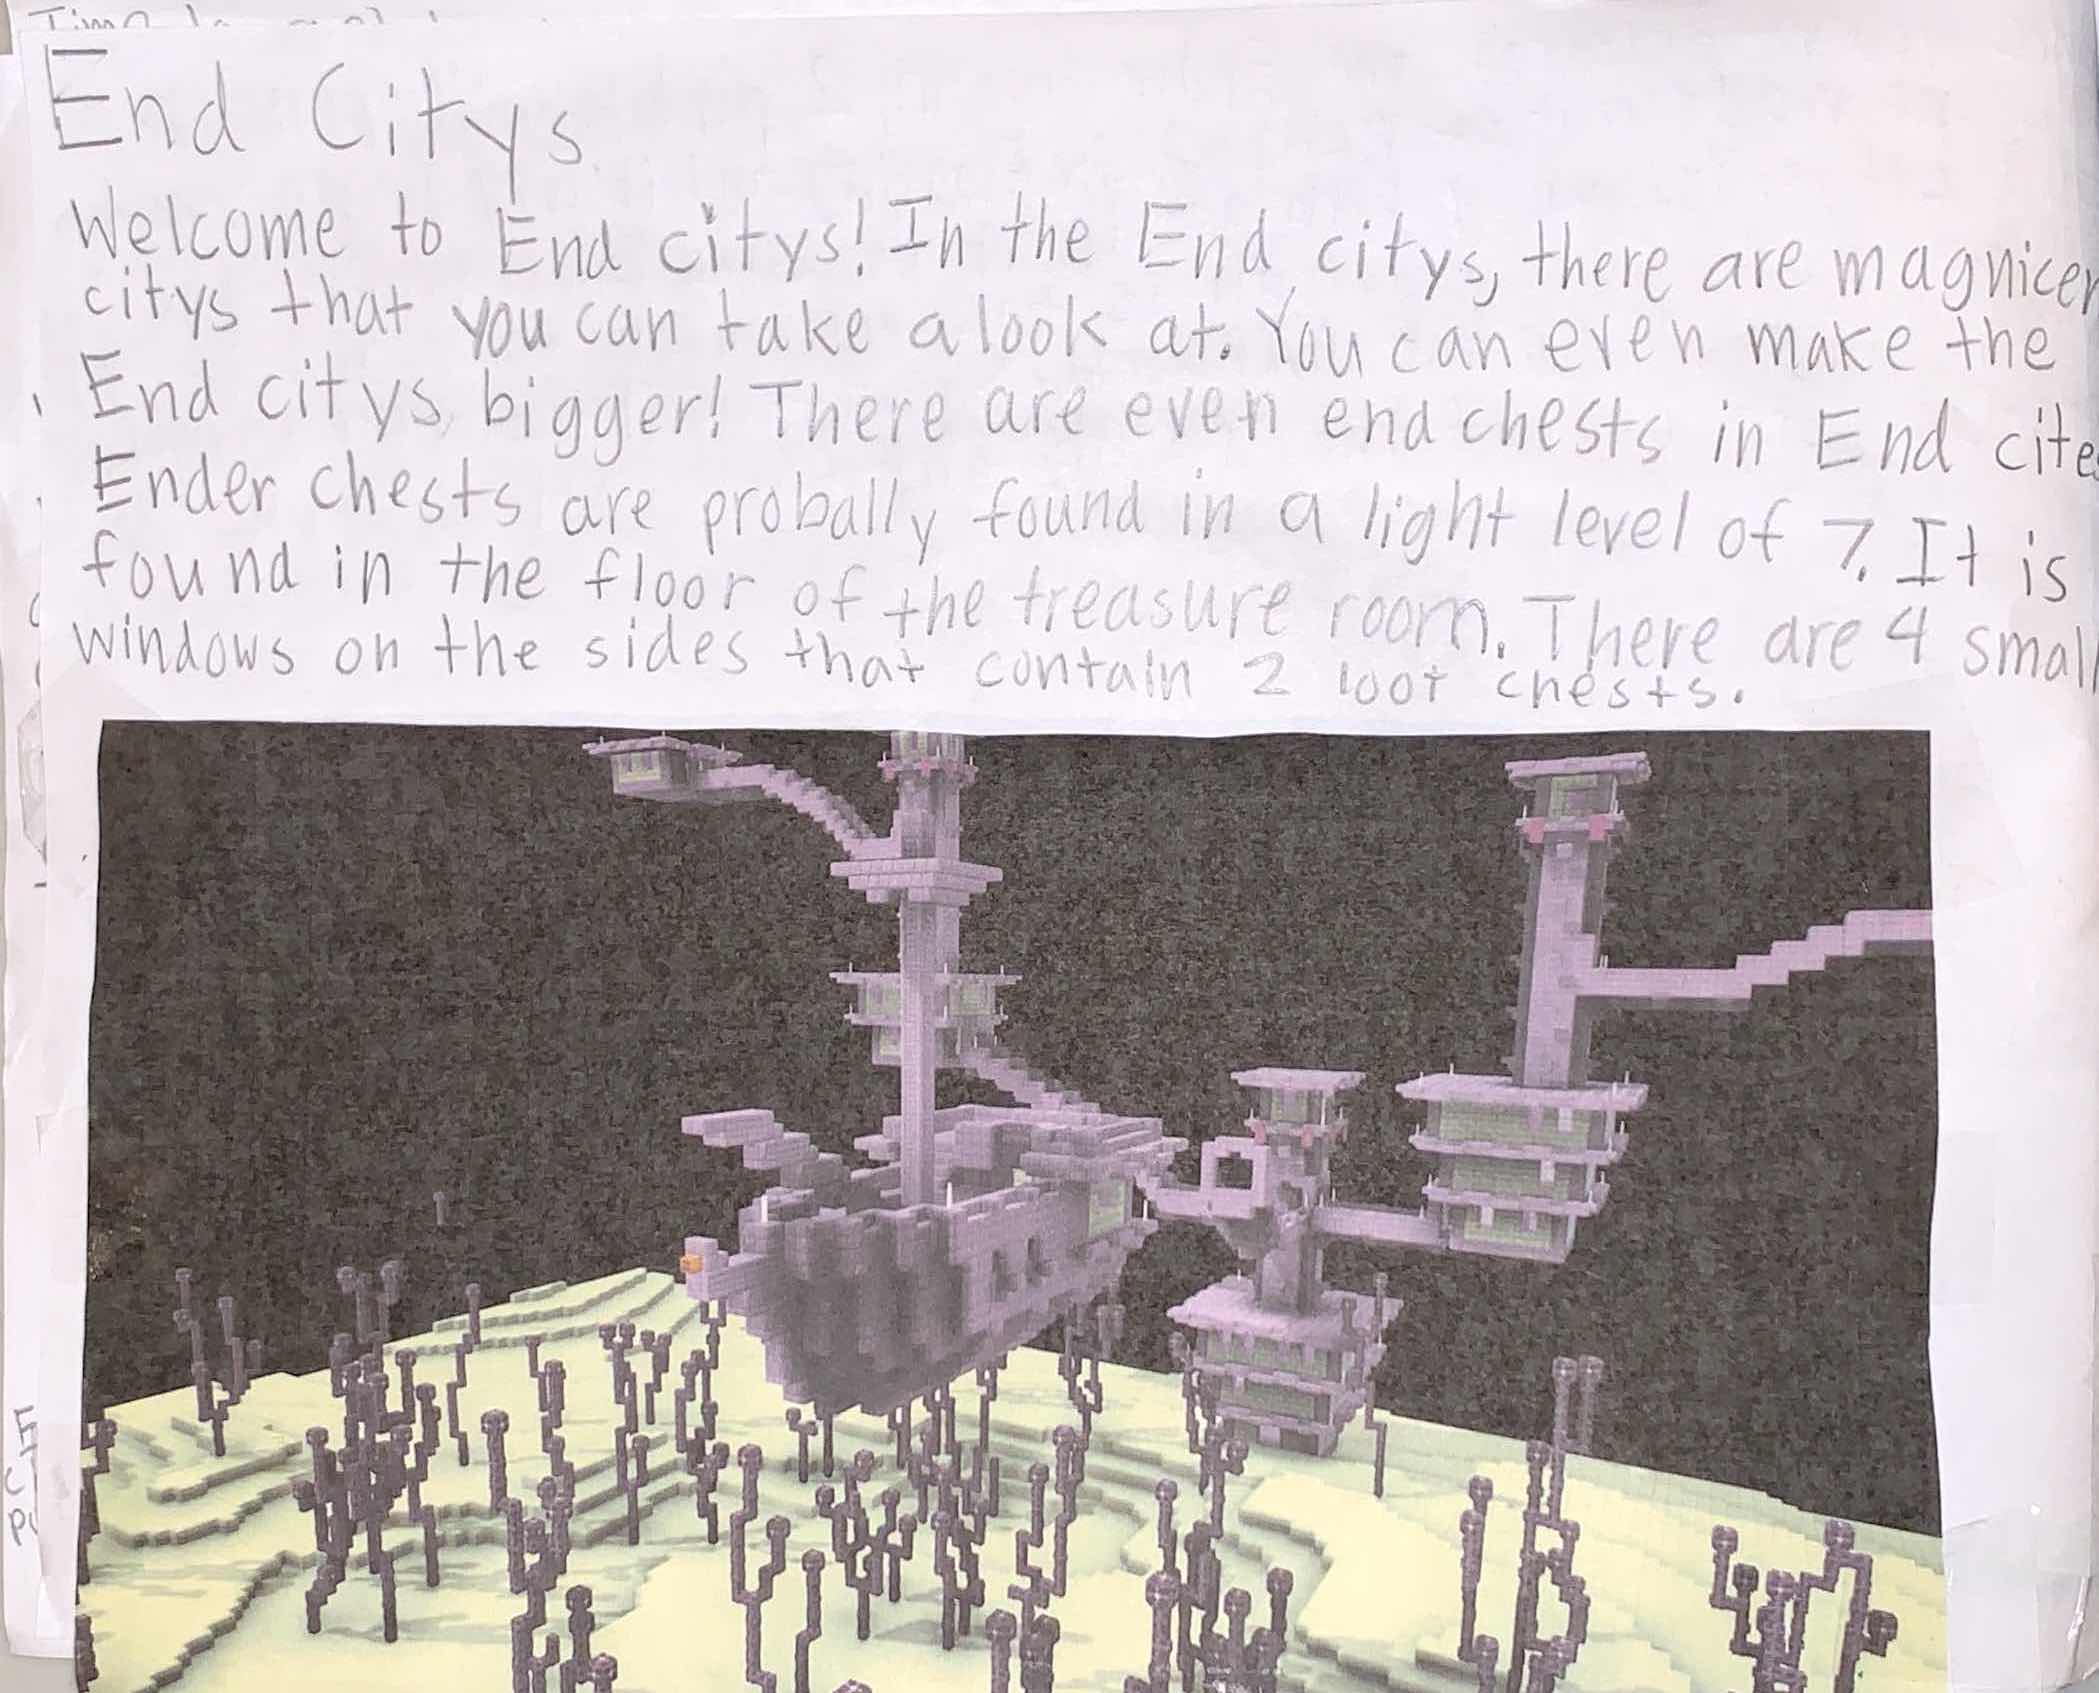 End Citys
Welcome to End citys! In the End citys, there are
citys that you can take a look at. You can even make the
End citys bigger! There are even end chests in End
Ender chests are probally found in a light level of 7. It is
found in the floor of the treasure room. There are 4 small
windows on the sides that contain 2 loot chests.